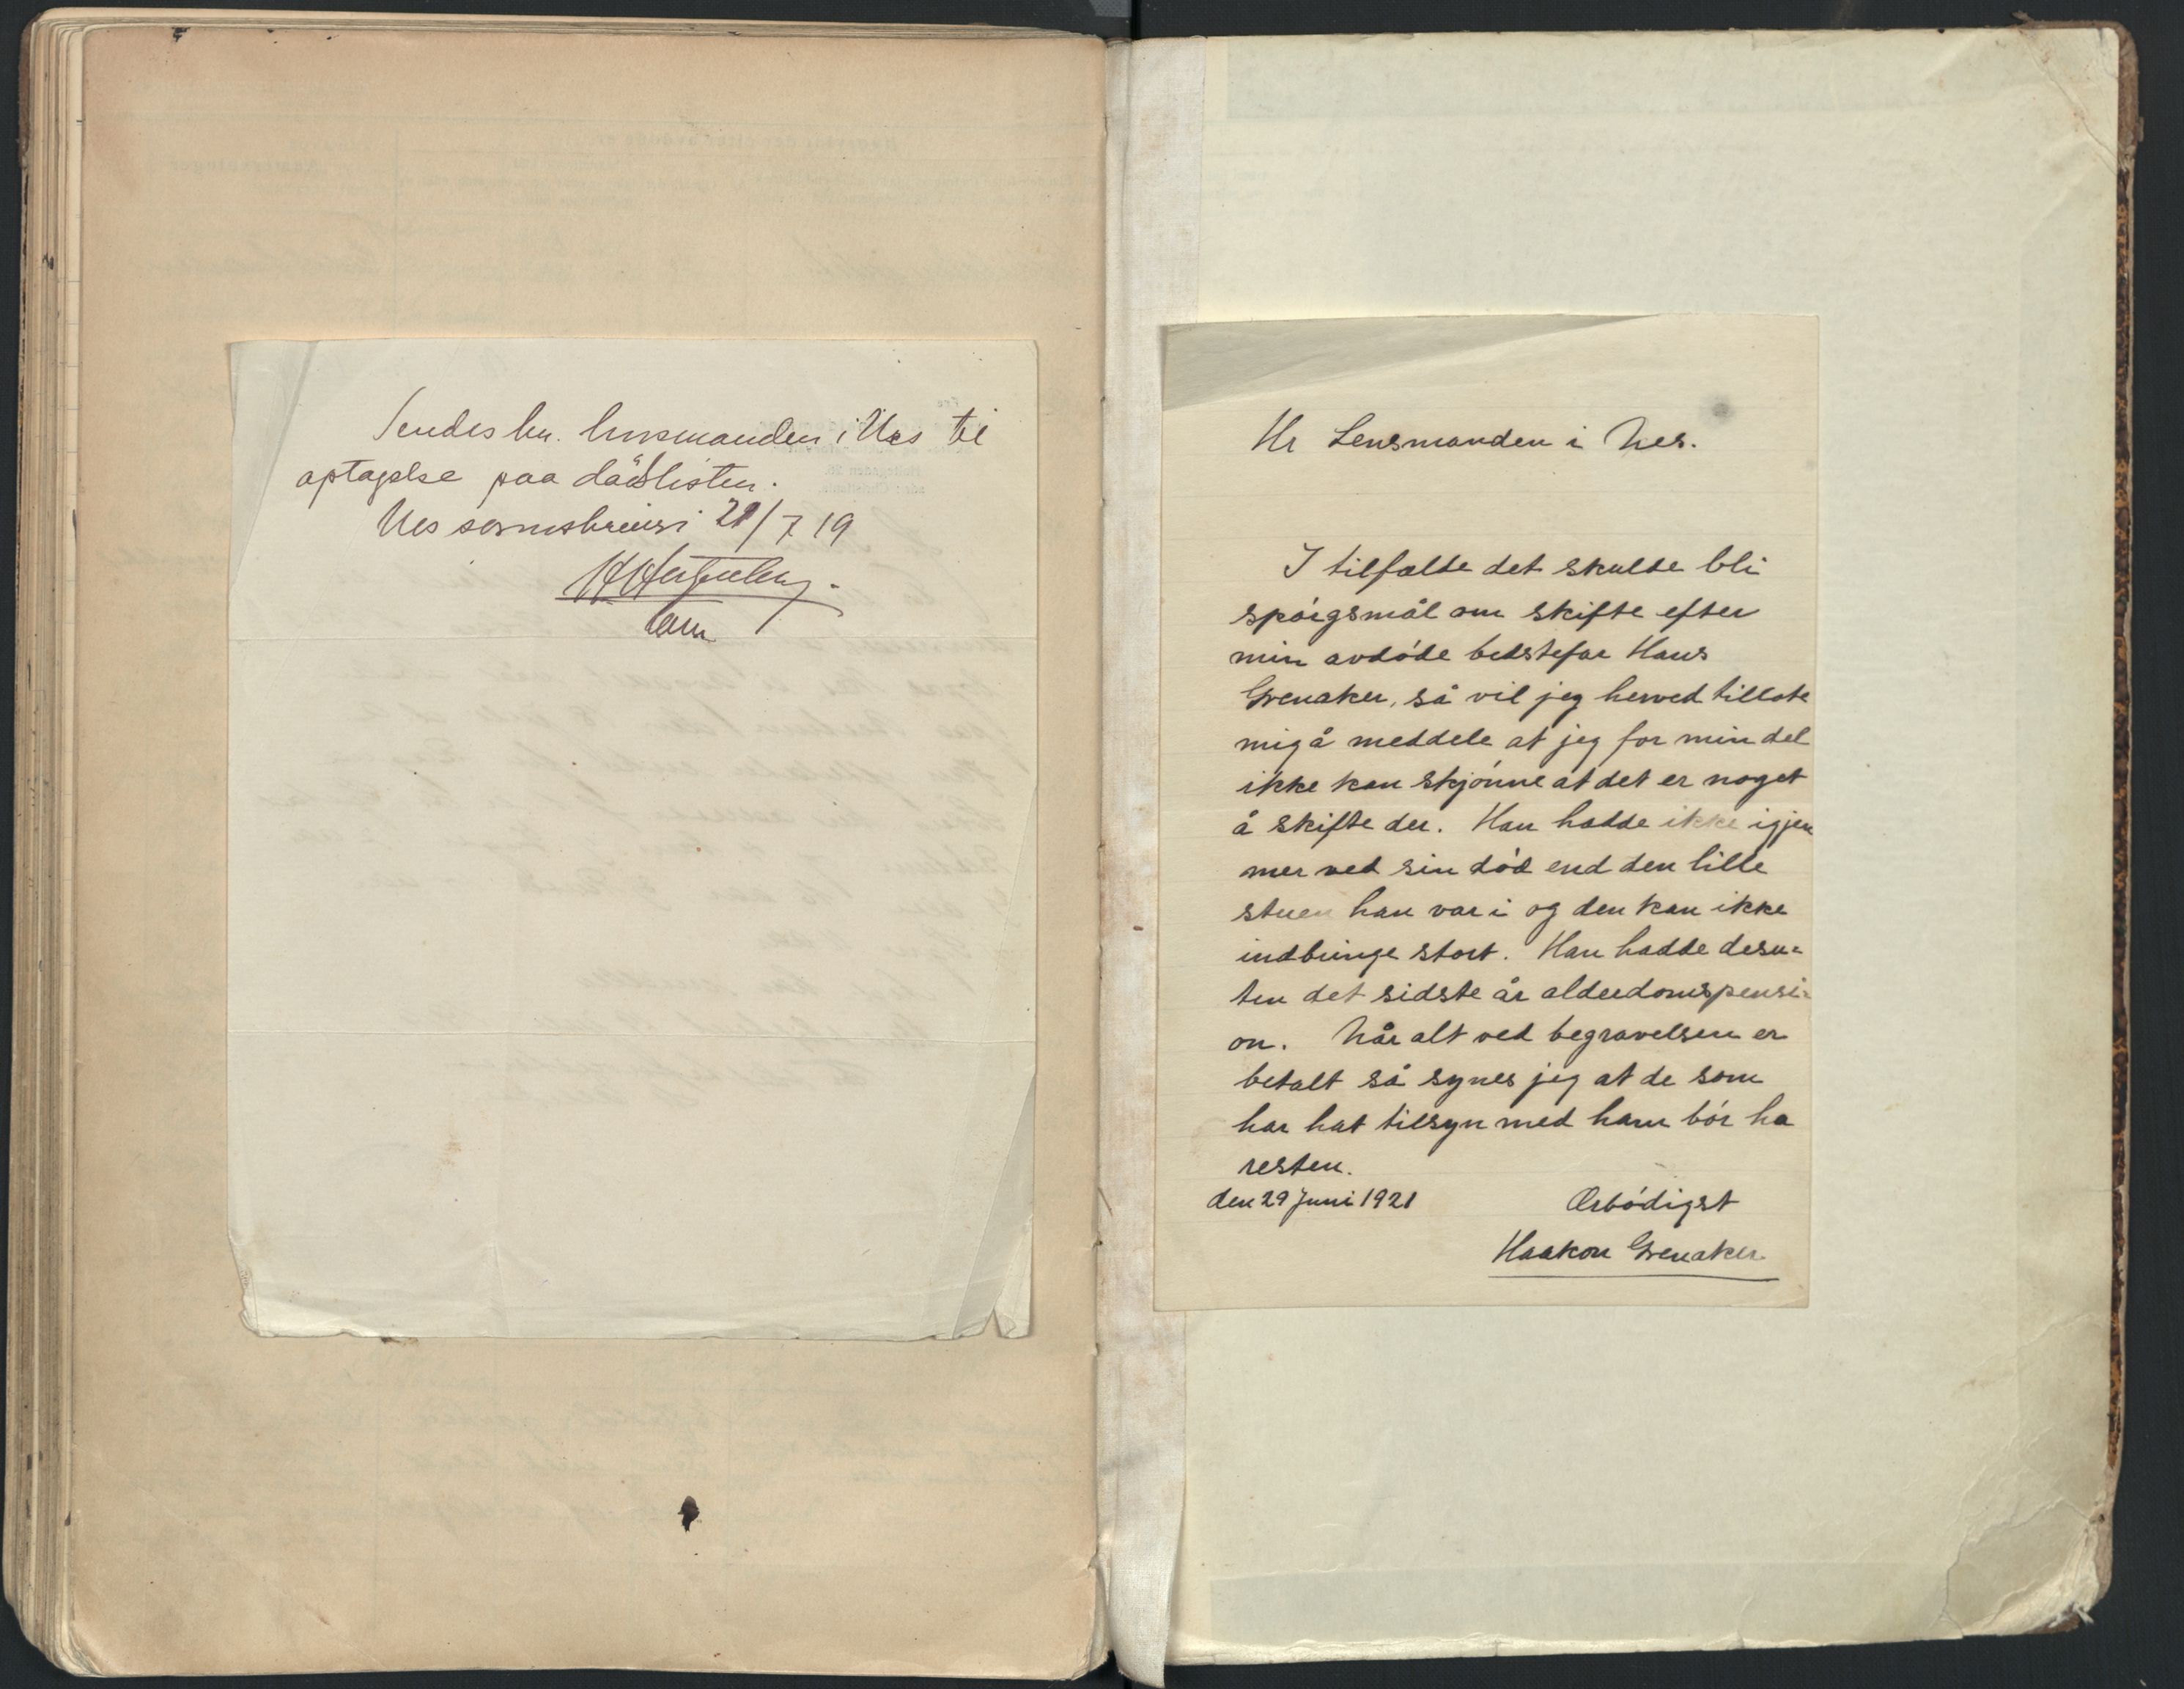 Sendes hr. lensmanden i Nes til
optagelse paa dødslisten.
Nes sorenskriveri 21/7 19
Hr Lensmanden i Nes.
I tilfælde det skulde bli
spórgsmål om skifte efter
min avdóde bedstefar Hans
Grenaker, så vil jeg herved tillate
mig å meddele at jeg for min del
ikke kan skjónne at det er noget
å skifte der. Han hadde ikke igjen
mer ved sin dód end den lille
stuen han var i og den kan ikke
indbringe stort. Han hadde desu=
ten det sidste år alderdomspensi=
on. Når alt ved begravelsen er
betalt så synes jeg at de som
har hat tilsyn med ham bór ha
resten.
den 29 Juni 1921 Ærbódigst
Haakon Grenaker